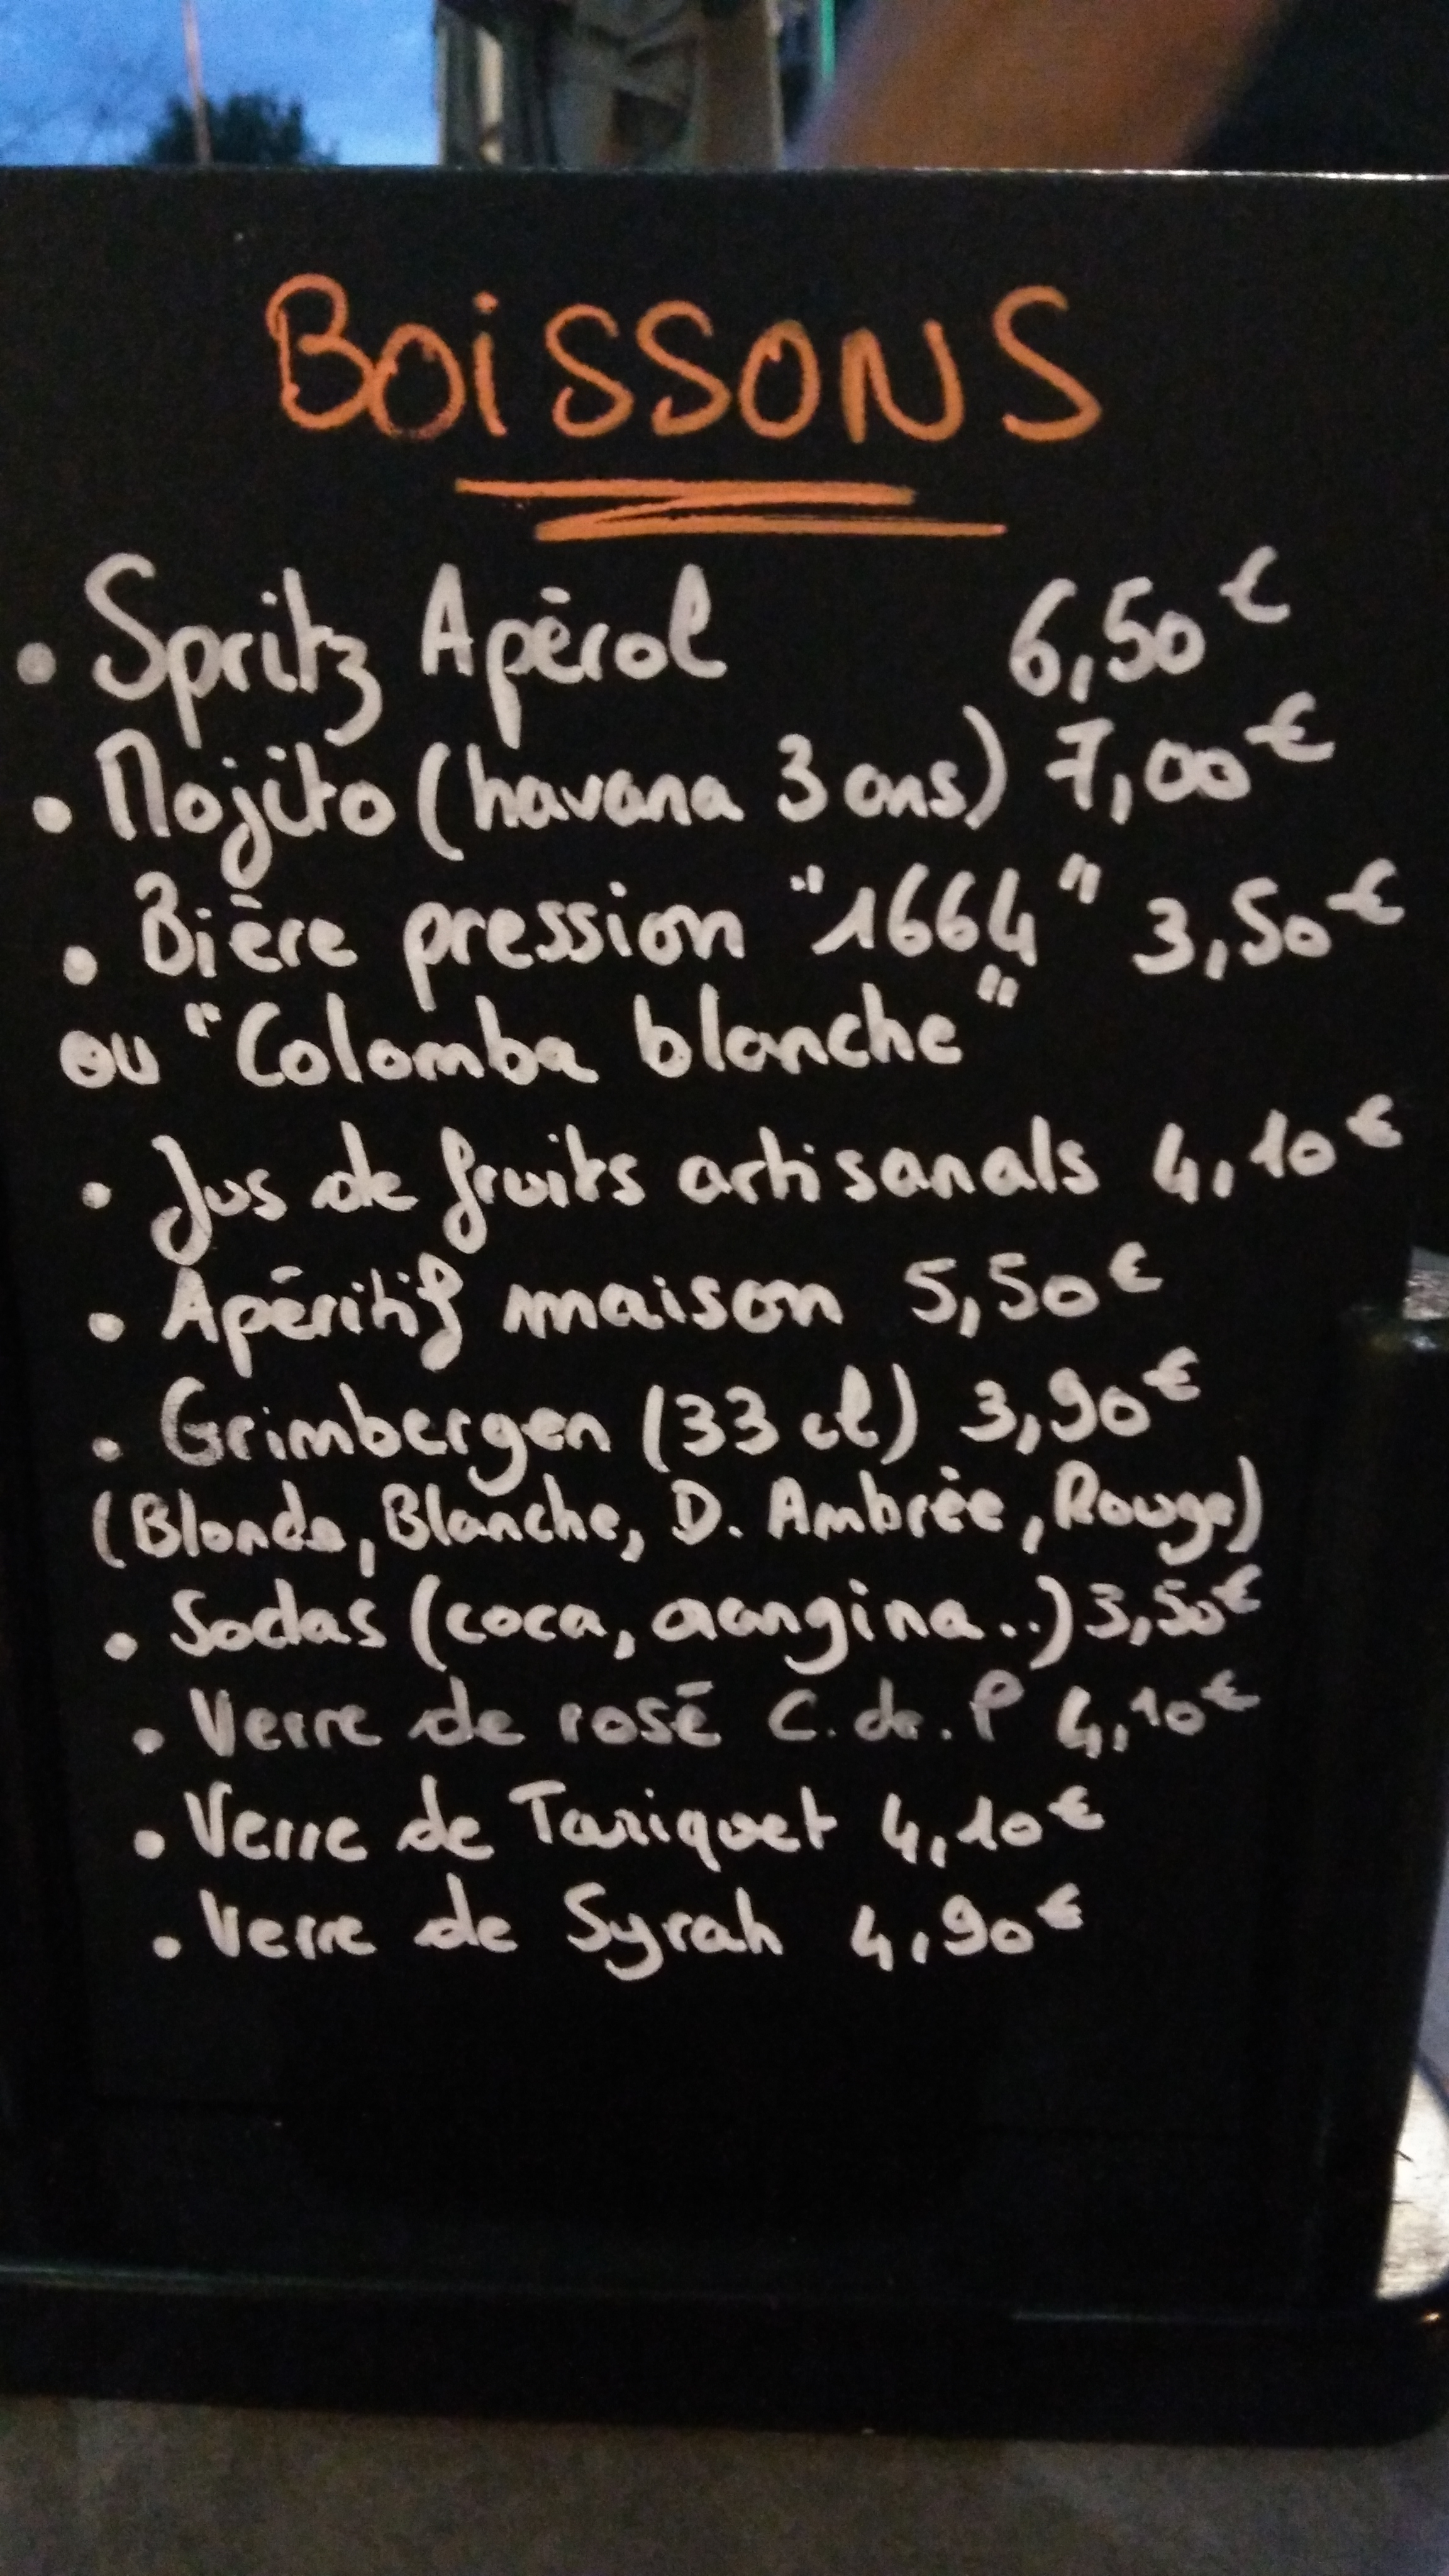 BOiSSONS
• Spritz Apérol 6,50€
• Mojito (havana 3 ans) 7,00€
• Bière pression "1664" 3,50€
ou "Colomba blanche"
• Jus de fruits artisanals 4,10€
• Apéritif maison 5,50€
• Grimbergen (33 cl) 3,90€
(Blonde, Blanche, D. Ambrée, Rouge)
• Sodas (coca, orangina..) 3,50€
• Verre de rosé C.de.P 4,10€
• Verre de Tariquet 4,10€
• Verre de Syrah 4,90€